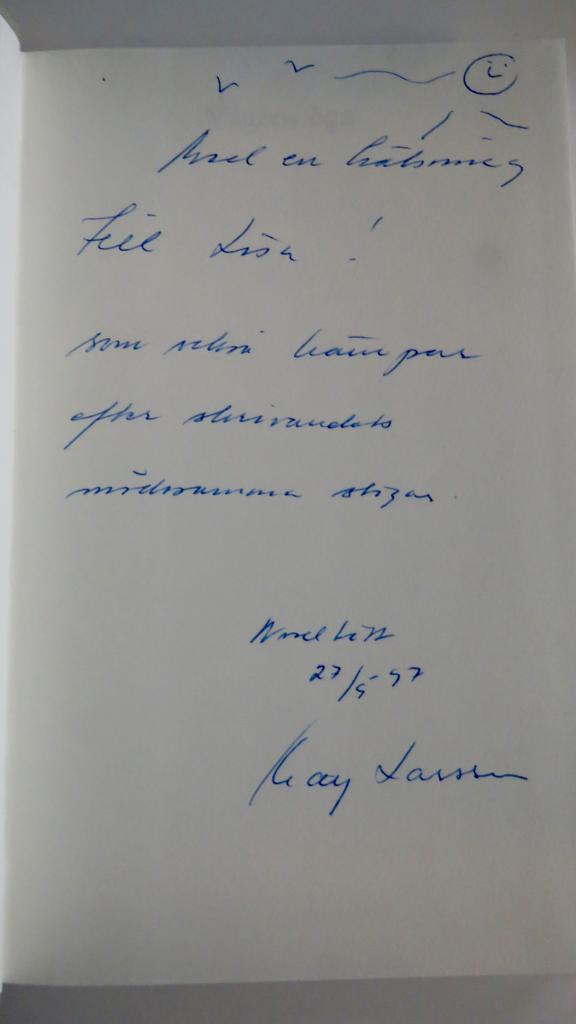 Med en hälsning
Till Lisa !
som också kämpar
efter skrivandets
mödosamma stigar.
27/5-97
Kay Larsson